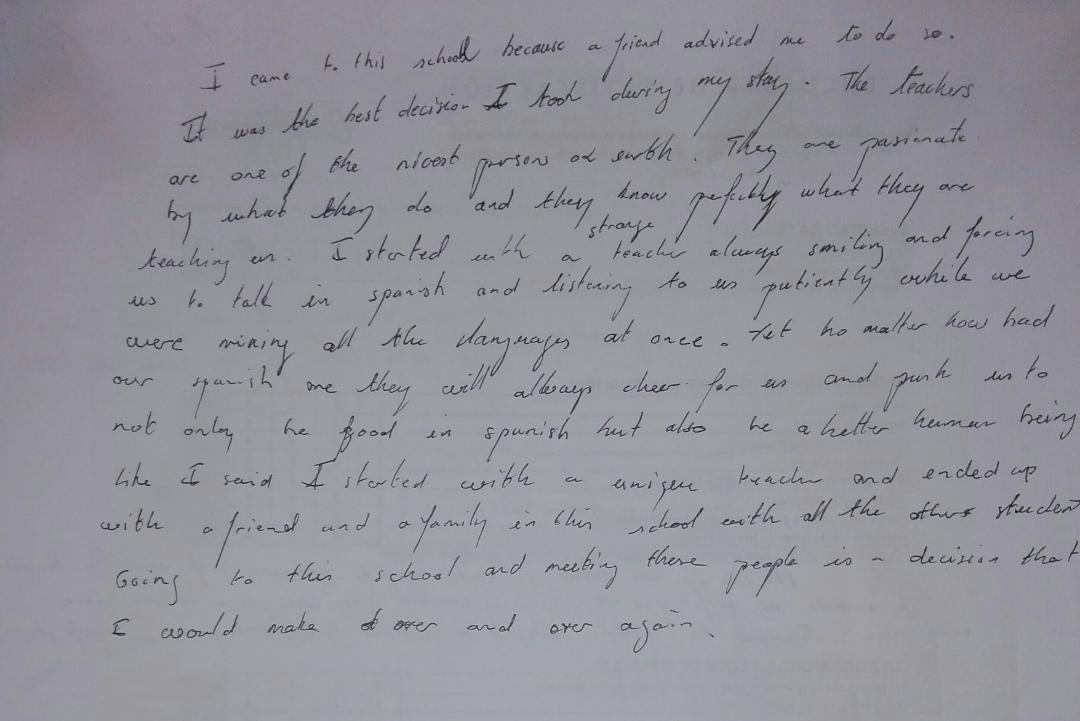 I came to this school because a friend advised me to do so.
It was the best decision I took during my stay. The teachers
are one of the nicest persons on earth. They are pasionate
by what they do and they know perfectly what they are
teaching us. I started with a strange teacher always smiling and forcing
us to talk in spanish and listening to us patiently while we
were mixing all the languages at once. Yet no matter how bad
our spanish are they will always cheer for us and push us to
not only be good in spanish but also be a better human being
like I said I started with a unique teacher and ended up
with a friend and a family in this school with all the other student
Going to this school and meeting these people is a decision that
I would make over and over again.